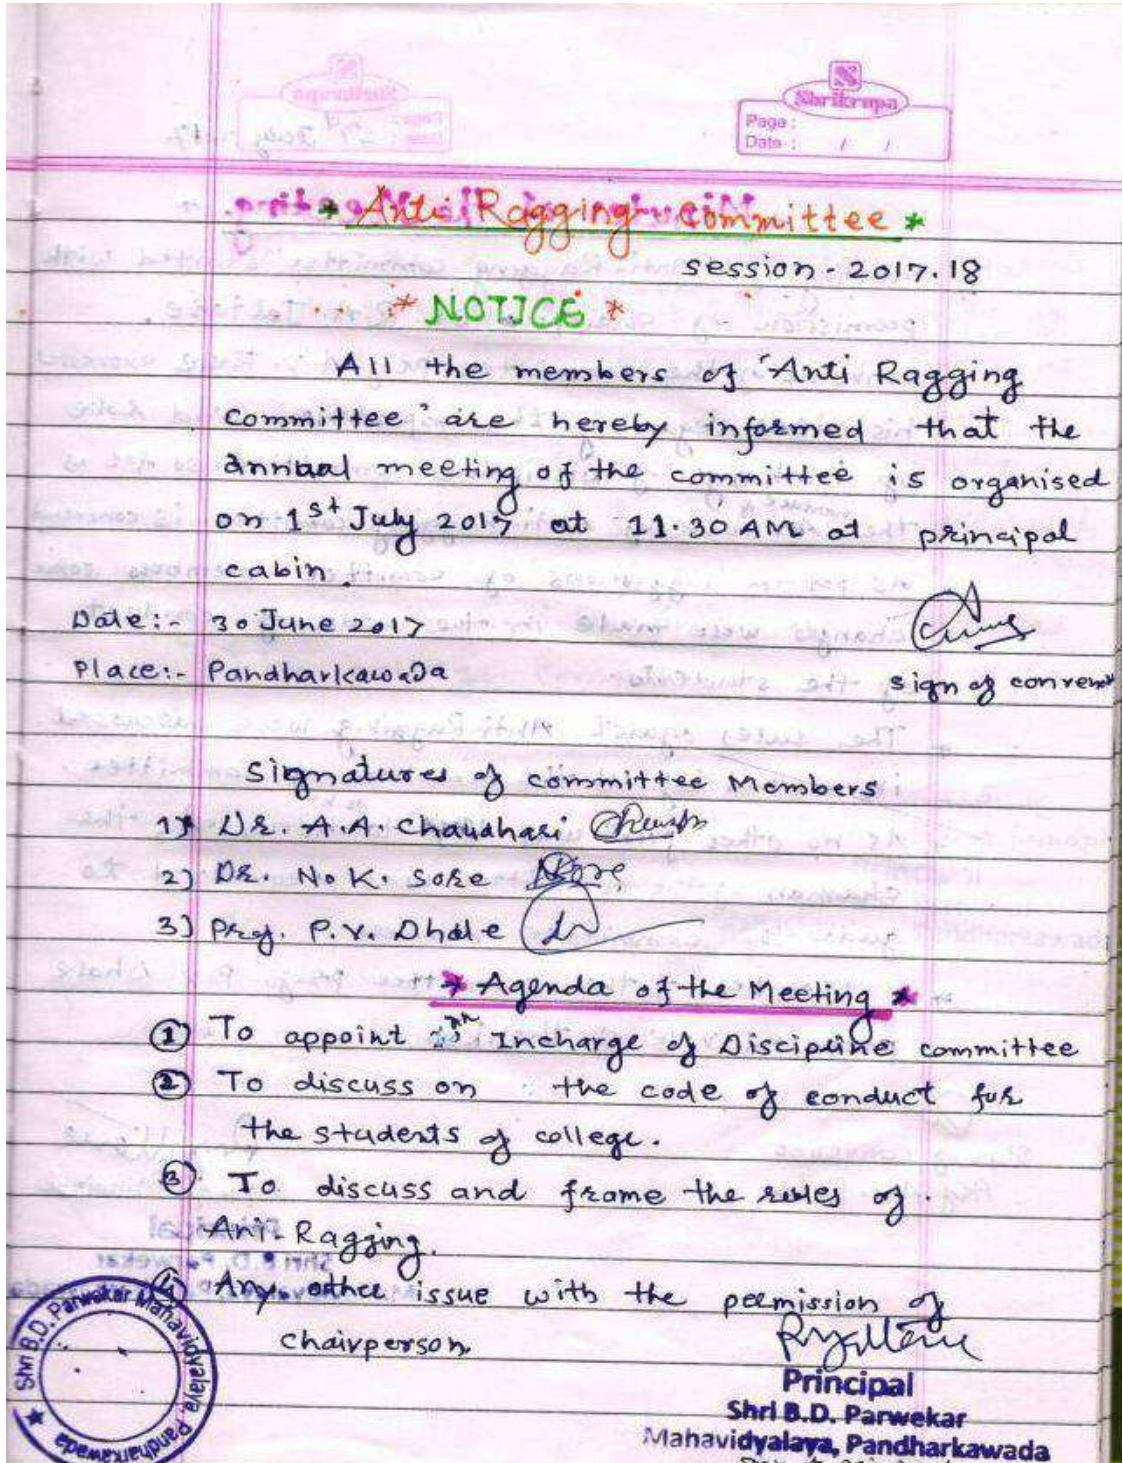 Shrikrupa
Page :
Date : / /
* Anti Ragging Committee *
session - 2017.18
* NOTICE *
All the members of 'Anti Ragging
committee' are hereby informed that the
annual meeting of the committee is organised
on 1st July 2017 at 11.30 AM at principal
cabin.
Date:- 30 June 2017
Place:- Pandharkawada
sign of convenor
Signatures of committee Members
1) Dr. A.A. Chaudhari
2) Dr. N.K. Sore
3) Prof. P.V. Dhale
* Agenda of the Meeting *
① To appoint an Incharge of Discipline committee
② To discuss on the code of conduct for
the students of college.
③ To discuss and frame the rules of
Anti-Ragging.
④ Any other issue with the permission of
chairperson.
Principal
Shri B.D. Parwekar
Mahavidyalaya, Pandharkawada
Shri B.D. Parwekar Mahavidyalaya, Pandharkawada